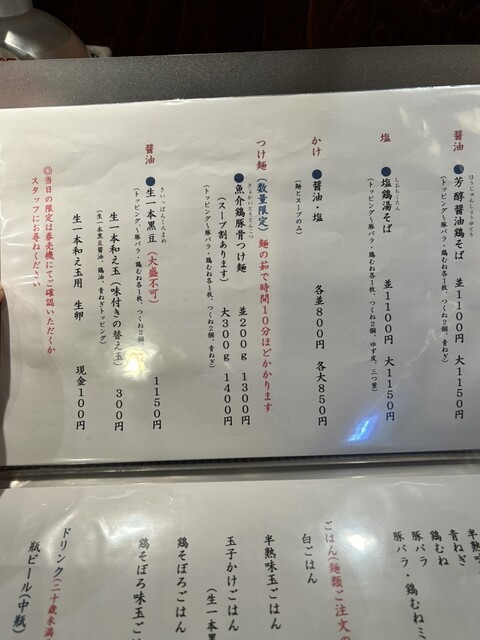 醤油
ほうじゅんしょうゆとり
●芳醇醤油鶏そば 並1100円 大1150円
(トッピング～豚バラ・鶏むね各1枚、つくね2個、青ねぎ)
塩
●塩鶏湯そば 並1100円 大1150円
(トッピング～豚バラ・鶏むね各1枚、つくね2個、ゆず皮、三つ葉)
かけ
●醤油・塩 各並800円 各大850円
(麺とスープのみ)
つけ麺(数量限定)麺の茹で時間10分ほどかかります
ぎょかいとりとんこつ
●魚介鶏豚骨つけ麺 並200g 1300円
(スープ割あります) 大300g 1400円
(トッピング～豚バラ・鶏むね各1枚、つくね2個、青ねぎ)
醤油
きいっぽんくろまめ
●生一本黒豆(大盛不可) 1150円
(トッピング～豚バラ・鶏むね各1枚、つくね2個、
生一本和え玉(味付きの替え玉) 300円
(生一本黒豆醤油、鶏油、青ねぎトッピング)
生一本和え玉用 生卵 現金100円
◎当日の限定は券売機にてご確認いただくか
スタッフにお尋ねください
半熟味
青ねぎ
鶏むね
豚バラ
豚バラ・鶏むねミ
ごはん(麺類ご注文の
白ごはん
半熟味玉ごはん
玉子かけごはん
(生一本黒
鶏そぼろごはん
鶏そぼろ味玉ごは
ドリンク(二十歳未満
瓶ビール(中瓶)